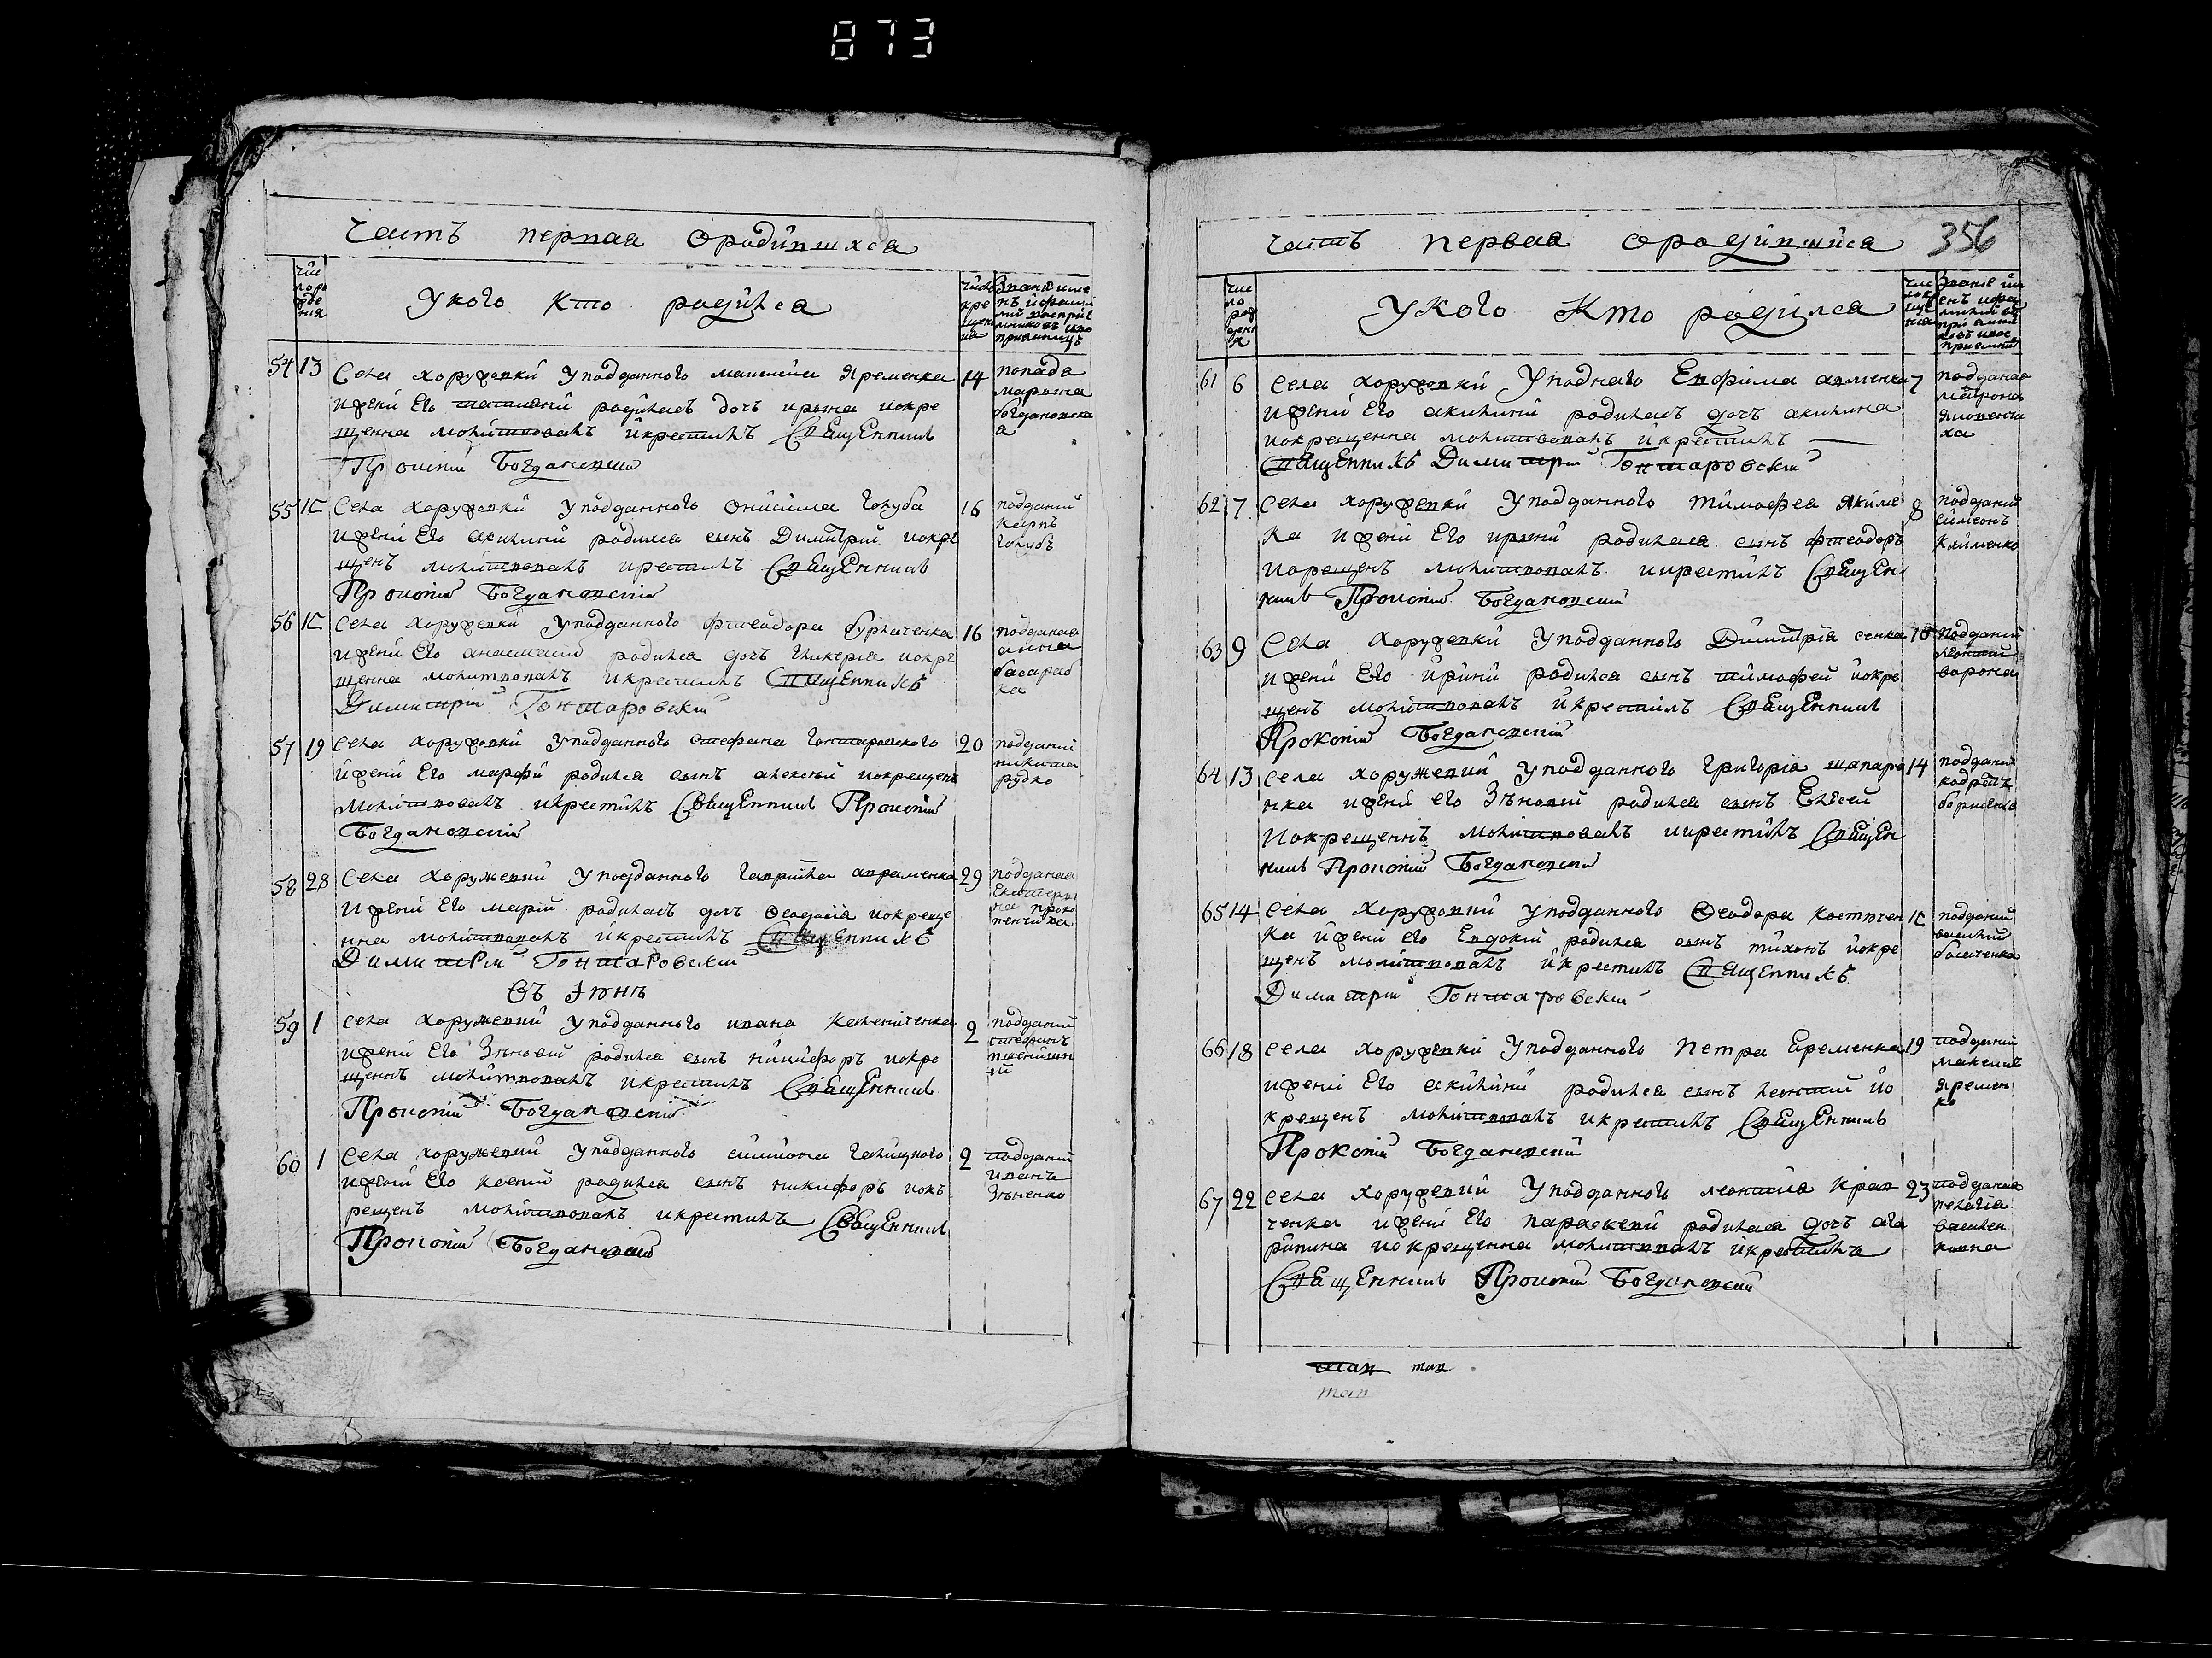 873
Часть первая ородившихся
Число рожде ния
У кого кто родился
Число кре щени ия
Звание име нъ и фамил ий восприе мниковъ и во приемницъ
54 13 Села хоружевки у подданного максима Яременка 14
и жени Его татиани родилась дочъ ирина и окре
щенна молитвовалъ и крестилъ Священникъ
Прокопий Богдановский
попадя
марфна
богдановска
а
55 15 Села хоружевки у подданного онисима голуба 16
и жени Его акилини родился сынъ Димитрий и окре
щенъ молитвовалъ и крестилъ Священникъ
Прокопий Богдановский
подданий
карпъ
голубъ
56 15 Села хоружевки у подданного фтеодора бурлаченка 16
и жени Его анастасии родилса дочъ гликерия и окре
щенна молитвовалъ и крестилъ Священникъ
Димитрий Гонтаровский
подданая
анна
басараб
ка
57 19 Села хоружевки у подданного стефана гонтаровского 20
и жени Его марфи родился сынъ алексий и окрещенъ
молитвовалъ и крестилъ Священникъ Прокопий
Богдановский
подданий
никита
рудко
58 28 Села хоружевки у подданного гаврила авраменка 29
и жени Его марии родилась дочъ Феодосия и окреще
нна молитвовалъ и крестилъ Священникъ
Димитрий Гонтаровский
подданая
Екатери
на проко
пенчиха
Въ Iюнѣ
59 1 Села хоружевки у подданного ивана келениченка 2
и жени Его Зѣновии родился сынъ никифоръ и окре
щеннъ молитвовалъ и крестилъ Священникъ
Прокопий Богдановский
подданий
стефанъ
пшенишн
ий
60 1 Села хоружевки у подданного симиона галицкого 2
и жени Его ксении родился сынъ никифоръ и окъ
рещенъ молитвовалъ и крестилъ Священникъ
Прокопий Богдановский
подданий
иванъ
Зѣненко
Часть первая ородившийся 356
Число рождения
У кого кто родился
61 6 Села хоружевки у поднаго Евфима авменка 7
и жени Его акилини родилась дочъ акилина
и окрещенна молитвовалъ и крестилъ
Священникъ Димитрий Гонтаровский
подданая
матрона
62 7 Села хоружевки у подданного тимофея Якиме 8
ка и жени Его ирини родился сынъ фтеодоръ
и окрещенъ молитвовалъ и крестилъ Священ
никъ Прокопий Богдановский
подданий
симеонъ
Клименко
63 9 Села хоружевки у подданного Димитрия сенка 10
и жени Его ирини родился сынъ тимофей и окре
щенъ молитвовалъ и крестилъ Священникъ
Прокопий Богдановский
подданий
леонтий
ворона
64 13 Села хоружевки у подданного григория шапаре 14
нка и жени его Зѣновии родился сынъ Елесей
и окрещеннъ молитвовалъ и крестилъ Священ
никъ Прокопий Богдановский
подданий
кодратъ
борисенко
65 14 Села хоружевки у подданного Феодора костючен 15
ка и жени его Евдокии родился сынъ тихонъ и окре
щенъ молитвовалъ и крестилъ Священникъ
Димитрий Гонтаровский
подданий
василий
66 18 Села хоружевки у подданного Петра Еременка 19
и жени Его акилини родился сынъ леонтий и о
крещенъ молитвовалъ и крестилъ Священникъ
Прокопий Богдановский
подданий
максимъ
яремен
ко
67 22 Села хоружевки у подданного леонтия крав 23
ченка и жени Его параскеви родилася дочъ ага
рипина и окрещенна молитвовалъ и крестилъ
Священникъ Прокопий Богдановский
подданая
пелагия
василен
ковна